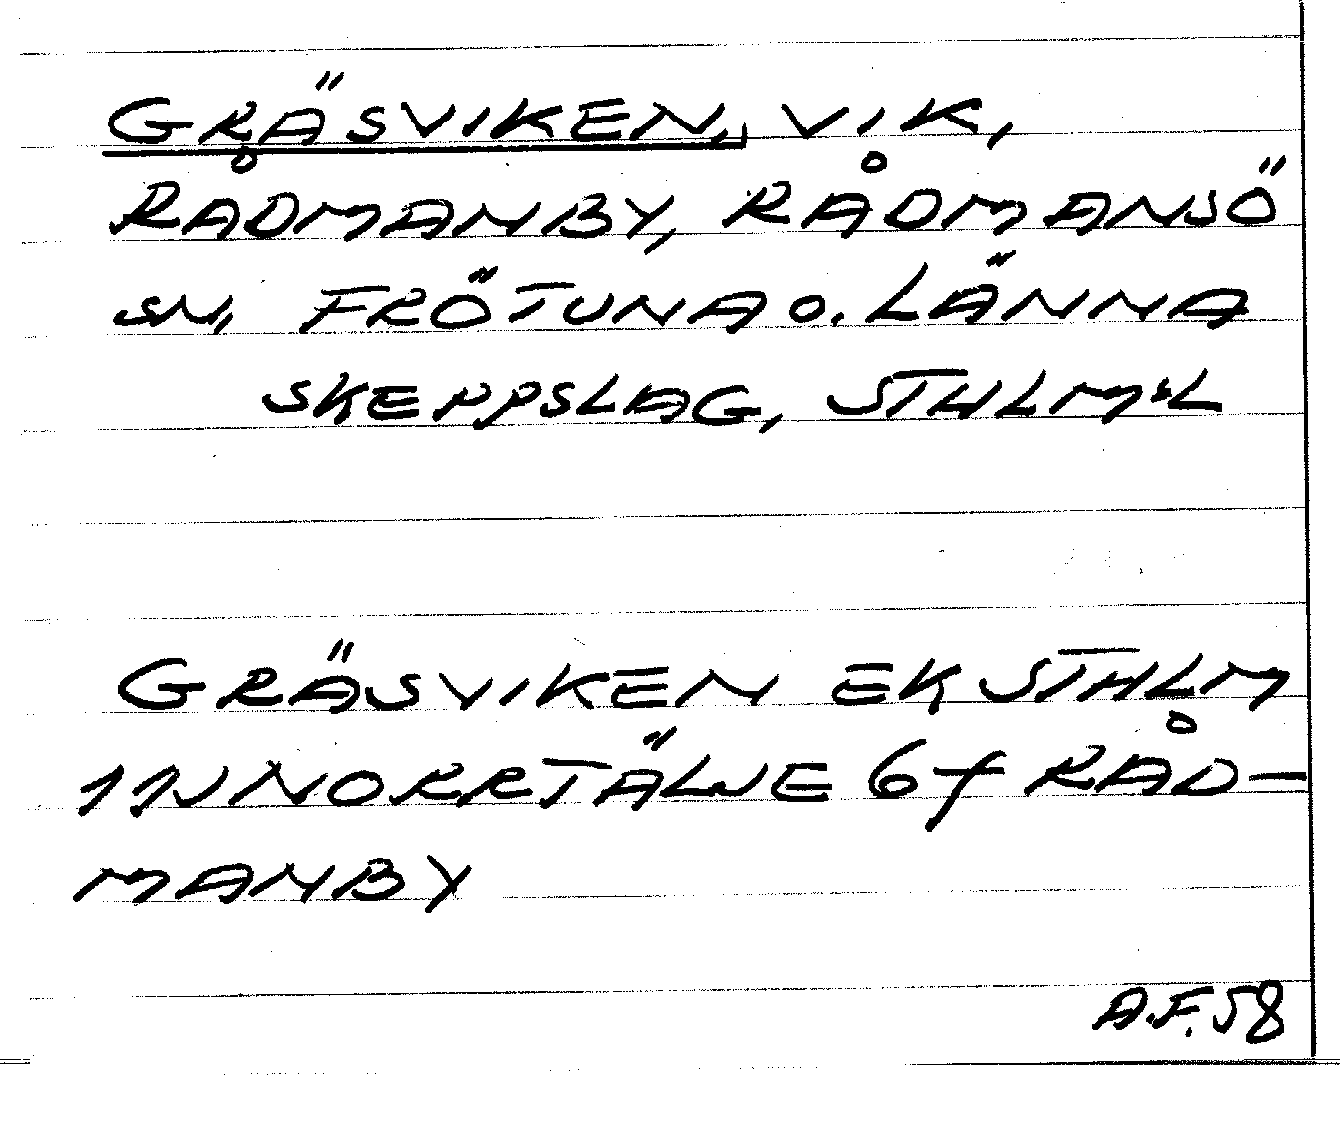 GRÄSVIKEN, VIK,
RÅDMANBY, RÅDMANSÖ
SN, FRÖTUNA O. LÄNNA
SKEPPSLAG, STHLMS L
GRÄSVIKEN EK STHLM
11J NORRTÄLJE 6f RÅD-
MANBY
A.F. 58